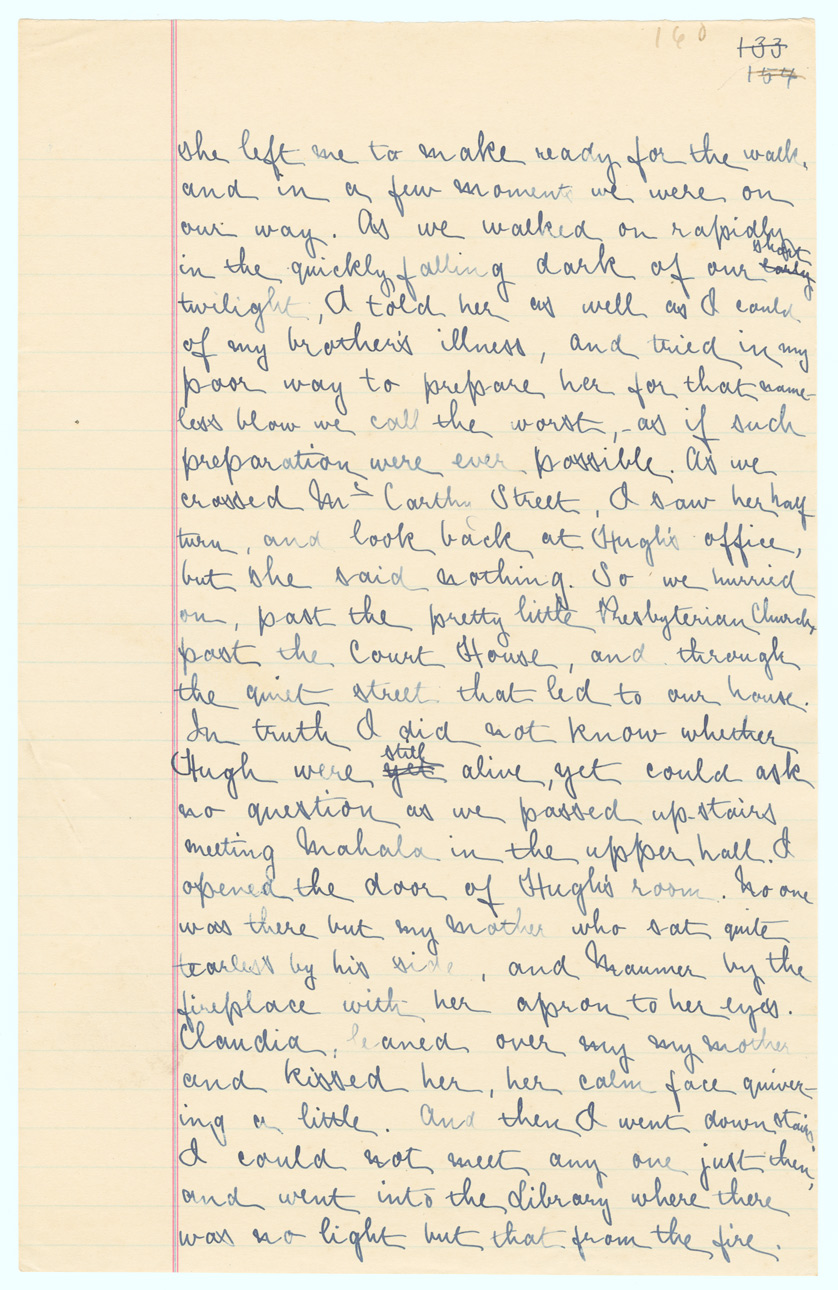 160
133
154
she left me to make ready for the walk,
and in a few moments we were on
our way. As we walked on rapidly
in the quickly falling dark of our early short
twilight, I told her as well as I could
of my brother's illness, and tried in my
poor way to prepare her for that name-
less blow we call the worst, - as if such
preparation were ever possible. As we
crossed Mc Carthy Street, I saw her half
turn, and look back at Hugh's office,
but she said nothing. So we hurried
on, past the pretty little Presbyterian Church,
past the Court House, and through
the quiet street that led to our house.
In truth I did not know whether
Hugh were yet still alive, yet could ask
no question as we passed up-stairs
meeting Mahala in the upper hall. I
opened the door of Hugh's room. No one
was there but my mother who sat quite
tearless by his side, and Maumer by the
fireplace with her apron to her eyes.
Claudia, leaned over my my mother
and kissed her, her calm face quiver-
ing a little. And then I went down stairs.
I could not meet any one just then,
and went into the Library where there
was no light but that from the fire.